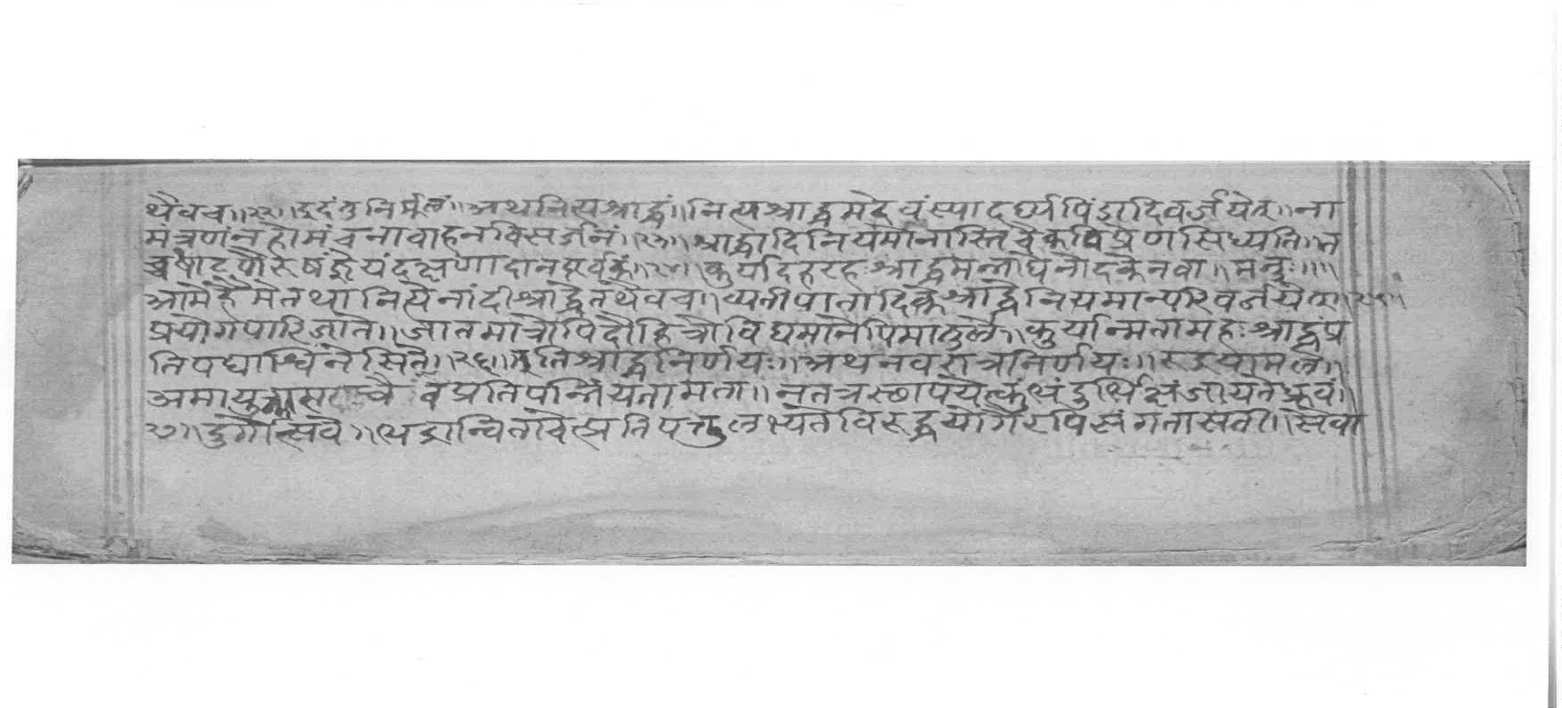 थैवच॥२२॥इदंतुनिर्मूलं॥अथनित्यश्राद्धं॥नित्यश्राद्धमदैवंस्यादर्घ्यपिंडादिवर्जयेत्॥ना
मंत्रणंनहोमंचनावाहनविसर्जनं॥२३॥श्राद्धादिनियमोनास्तिचैकविप्रेणसिध्यति॥त
च्चषाट्पौरुषंज्ञेयंदक्षणादानपूर्वकं॥२४॥कुर्यादहरहःश्राद्धमन्नाद्येनोदकेनवा॥मनुः॥॥
आमेहैमेतथानित्येनांदीश्राद्धेतथैवच॥व्यतीपातादिकेश्राद्धेनियमान्परिवर्जयेत्॥२५॥
प्रयोगपारिजाते॥जातमात्रोपिदौहित्रोविद्यमानेपिमातुले॥कुर्यान्मातामहःश्राद्धंप्र
तिपद्याश्विनेसिते॥२६॥इतिश्राद्धनिर्णयः॥अथनवरात्रनिर्णयः॥रुद्रयामले॥
अमायुक्तासदाचैवप्रतिपन्निंद्यतामता॥नतत्रस्छापयेत्कुंभंदुर्भिक्षंजायतेध्रुवं॥
२७॥दुर्गोत्सवे॥भद्रान्विताचेत्प्रतिपत्तुलभ्यतेविरुद्धयोगैरपिसंगतासती॥सैवा